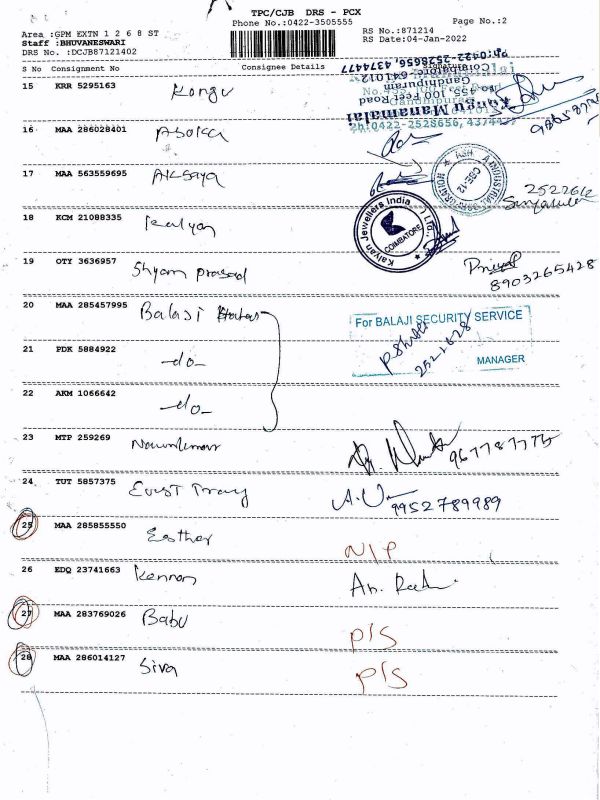 TPC/CJB DRS - PCX
Phone No.:0422-3505555
Page No.:2
Area :GPM EXTN 1 2 6 8 ST
Staff :BHUVANESWARI
DRS No. :DCJB87121402
RS No.:871214
RS Date:04-Jan-2022
S No Consignment No Consignee Details Signature
15 KRR 5295163 Kongu
Kongu Manamalai
No.455, 100 Feet Road
Gandhipuram
Coimbatore - 641012
Ph:0422-2528656, 4374477
Ph:0422-2528656, 4374477
16 MAA 286028401 Asoka
17 MAA 563559695 Aksaya
CBE-12
18 KCM 21088335 Kalyan
Kalyan Jewellers India Ltd.,
COIMBATORE
19 OTY 3636957 Shyam prasad
8903265428
20 MAA 285457995 Balaji
For BALAJI SECURITY SERVICE
2521628
MANAGER
21 PDK 5884922 -do-
22 AKM 1066642 -do-
23 MTP 259269
24 TUT 5857375
9952789989
25 MAA 285855550 Esther N/P
26 EDQ 23741663 Kennon
27 MAA 283769026 Babu P/S
28 MAA 286014127 Siva P/S